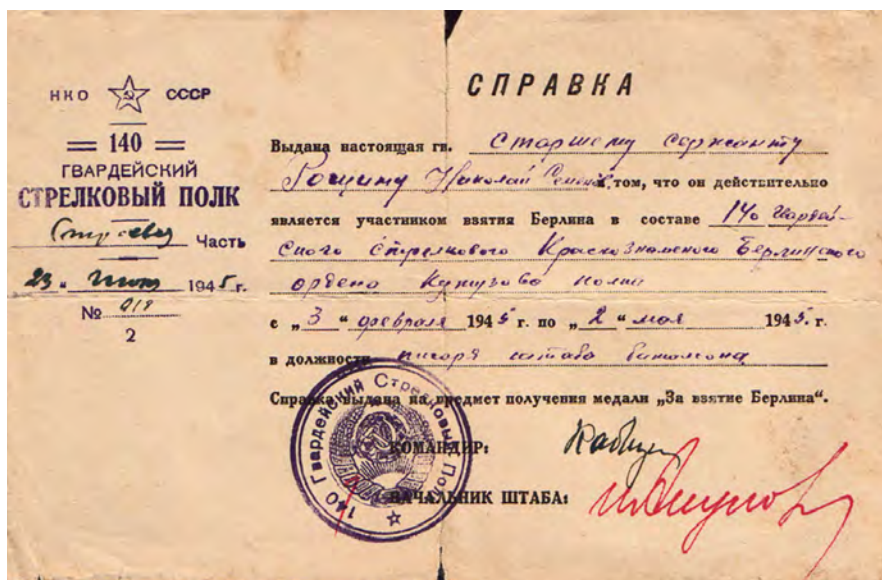 НКО СССР
= 140 =
ГВАРДЕЙСКИЙ
СТРЕЛКОВЫЙ ПОЛК
Строевая Часть
23 " 1945 г.
№ 018
2
СПРАВКА
Выдана настоящая гв. Старшему Сержанту
Рощину Николай в том, что он действительно
является участником взятия Берлина в составе 140 Гвардей-
ского Стрелкового Краснознаменого Берлинского
ордена Кутузова полка
с „ 3 " февраля 1945 г. по „ 2 " мая 1945. г.
в должности писаря штаба батальона
Справка выдана на предмет получения медали „За взятие Берлина".
КОМАНДИР:
НАЧАЛЬНИК ШТАБА:
140 Гвардейский Стрелковый Полк